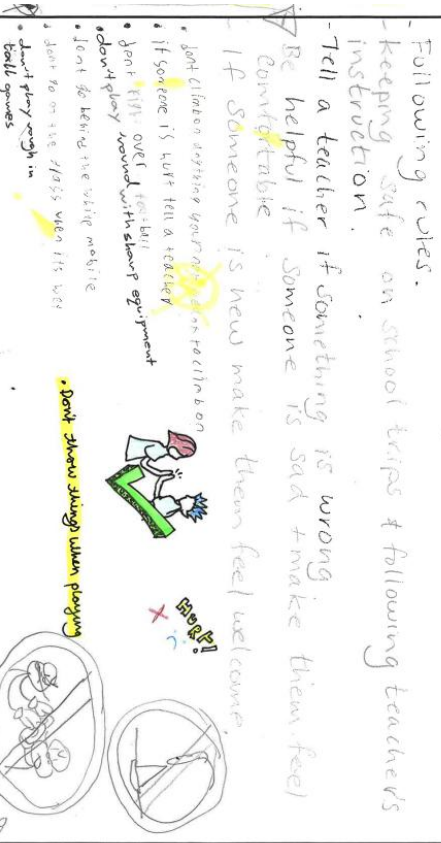 Following rules.
- keeping safe on school trips & following teacher's
instruction.
- Tell a teacher if something is wrong
Be helpful if someone is sad + make them feel
comfortable
- If someone is new make them feel welcome
• dont climb on anything your not to climb on
• if someone is hurt tell a teacher
• dont over football
• don't play round with sharp equipment
• dont go behind the white mobile
• dont go on the grass when its wet
• don't play rough in
ball games
• Don't throw things when playing
HURT!